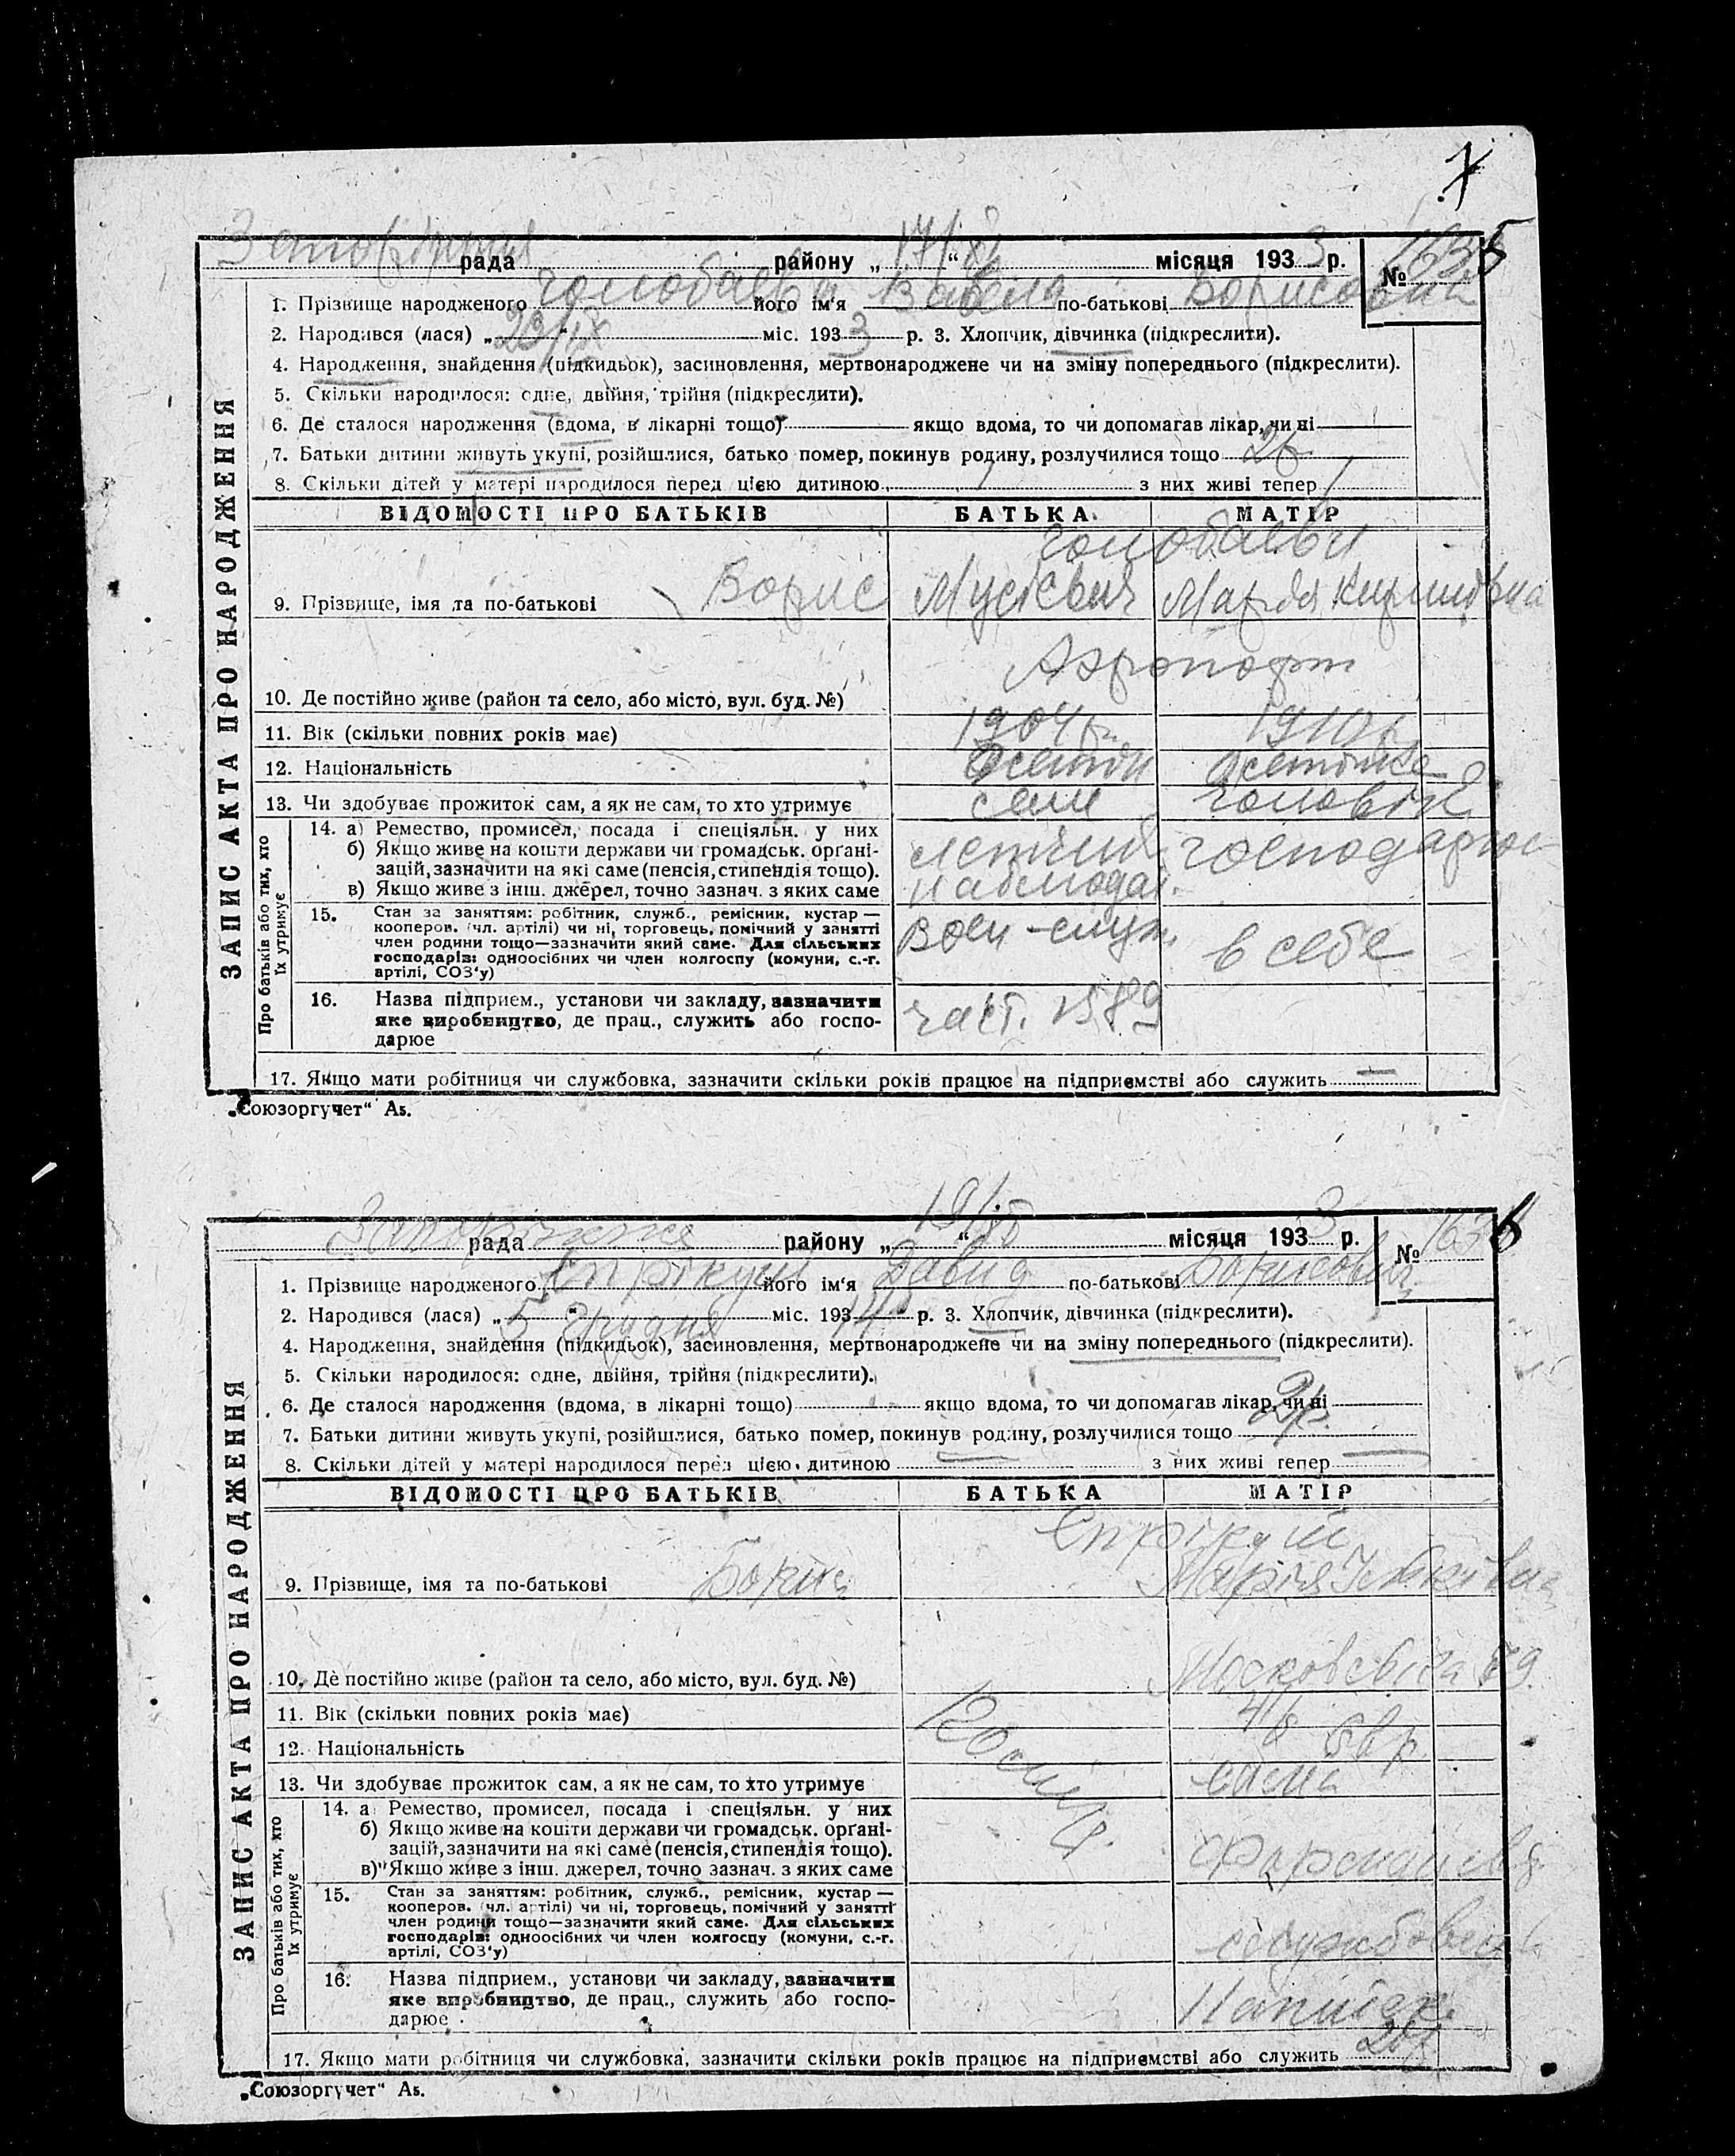 7
рада району „17/XI“ місяця 1933 р. № 1635
1. Прізвище народженого його ім'я по-батькові Борисовна
2. Народився (лася) „23/IX“ міс. 1933 р. 3. Хлопчик, дівчинка (підкреслити).
4. Народження, знайдення (підкидьок), засиновлення, мертвонароджене чи на зміну попереднього (підкреслити).
5. Скільки народилося: одне, двійня, трійня (підкреслити).
6. Де сталося народження (вдома, в лікарні тощо) якщо вдома, то чи допомагав лікар, чи ні
7. Батьки дитини живуть укупі, розійшлися, батько помер, покинув родину, розлучилися тощо
8. Скільки дітей у матері народилося перед цією дитиною 1 з них живі тепер 1
ЗАПИС АКТА ПРО НАРОДЖЕННЯ
ВІДОМОСТІ ПРО БАТЬКІВ БАТЬКА МАТІР
9. Прізвище, імя та по-батькові Борис Мусієвич Марія
Аэропорт
10. Де постійно живе (район та село, або місто, вул. буд. №)
11. Вік (скільки повних років має) 1904 р. 1910 р.
12. Національність осетин осетинка
13. Чи здобуває прожиток сам, а як не сам, то хто утримує сам чоловік
Про батьків або тих, хто їх утримує
14. а) Ремество, промисел, посада і спеціяльн. у них
б) Якщо живе на кошти держави чи громадськ. органі-
зацій, зазначити на які саме (пенсія, стипендія тощо).
в) Якщо живе з інш. джерел, точно зазнач. з яких саме
летчик наблюдат. господарює
15. Стан за заняттям: робітник, служб., ремісник, кустар —
кооперов. (чл. артілі) чи ні, торговець, помічний у занятті
член родини тощо—зазначити який саме. Для сільських
господарів: одноосібних чи член колгоспу (комуни, с.-г.
артілі, СОЗ'у)
воен-служ. в себе
16. Назва підприєм., установи чи закладу, зазначити
яке виробництво, де прац., служить або госпо-
дарює
част. 1589
17. Якщо мати робітниця чи службовка, зазначити скільки років працює на підприємстві або служить —
„Союзоргучет“ А5.
рада району „19/XI“ місяця 1933 р. № 1636
1. Прізвище народженого його ім'я Давид по-батькові Борисович
2. Народився (лася) „5“ грудня міс. 193 р. 3. Хлопчик, дівчинка (підкреслити).
4. Народження, знайдення (підкидьок), засиновлення, мертвонароджене чи на зміну попереднього (підкреслити).
5. Скільки народилося: одне, двійня, трійня (підкреслити).
6. Де сталося народження (вдома, в лікарні тощо) якщо вдома, то чи допомагав лікар, чи ні
7. Батьки дитини живуть укупі, розійшлися, батько помер, покинув родину, розлучилися тощо
8. Скільки дітей у матері народилося перед цією дитиною — з них живі тепер —
ЗАПИС АКТА ПРО НАРОДЖЕННЯ
ВІДОМОСТІ ПРО БАТЬКІВ БАТЬКА МАТІР
9. Прізвище, імя та по-батькові Борис Марія
10. Де постійно живе (район та село, або місто, вул. буд. №)
11. Вік (скільки повних років має)
12. Національність євр.
13. Чи здобуває прожиток сам, а як не сам, то хто утримує сама
Про батьків або тих, хто їх утримує
14. а) Ремество, промисел, посада і спеціяльн. у них
б) Якщо живе на кошти держави чи громадськ. органі-
зацій, зазначити на які саме (пенсія, стипендія тощо).
в) Якщо живе з інш. джерел, точно зазнач. з яких саме
15. Стан за заняттям: робітник, служб., ремісник, кустар —
кооперов. (чл. артілі) чи ні, торговець, помічний у занятті
член родини тощо—зазначити який саме. Для сільських
господарів: одноосібних чи член колгоспу (комуни, с.-г.
артілі, СОЗ'у)
16. Назва підприєм., установи чи закладу, зазначити
яке виробництво, де прац., служить або госпо-
дарює
17. Якщо мати робітниця чи службовка, зазначити скільки років працює на підприємстві або служить
„Союзоргучет“ А5.